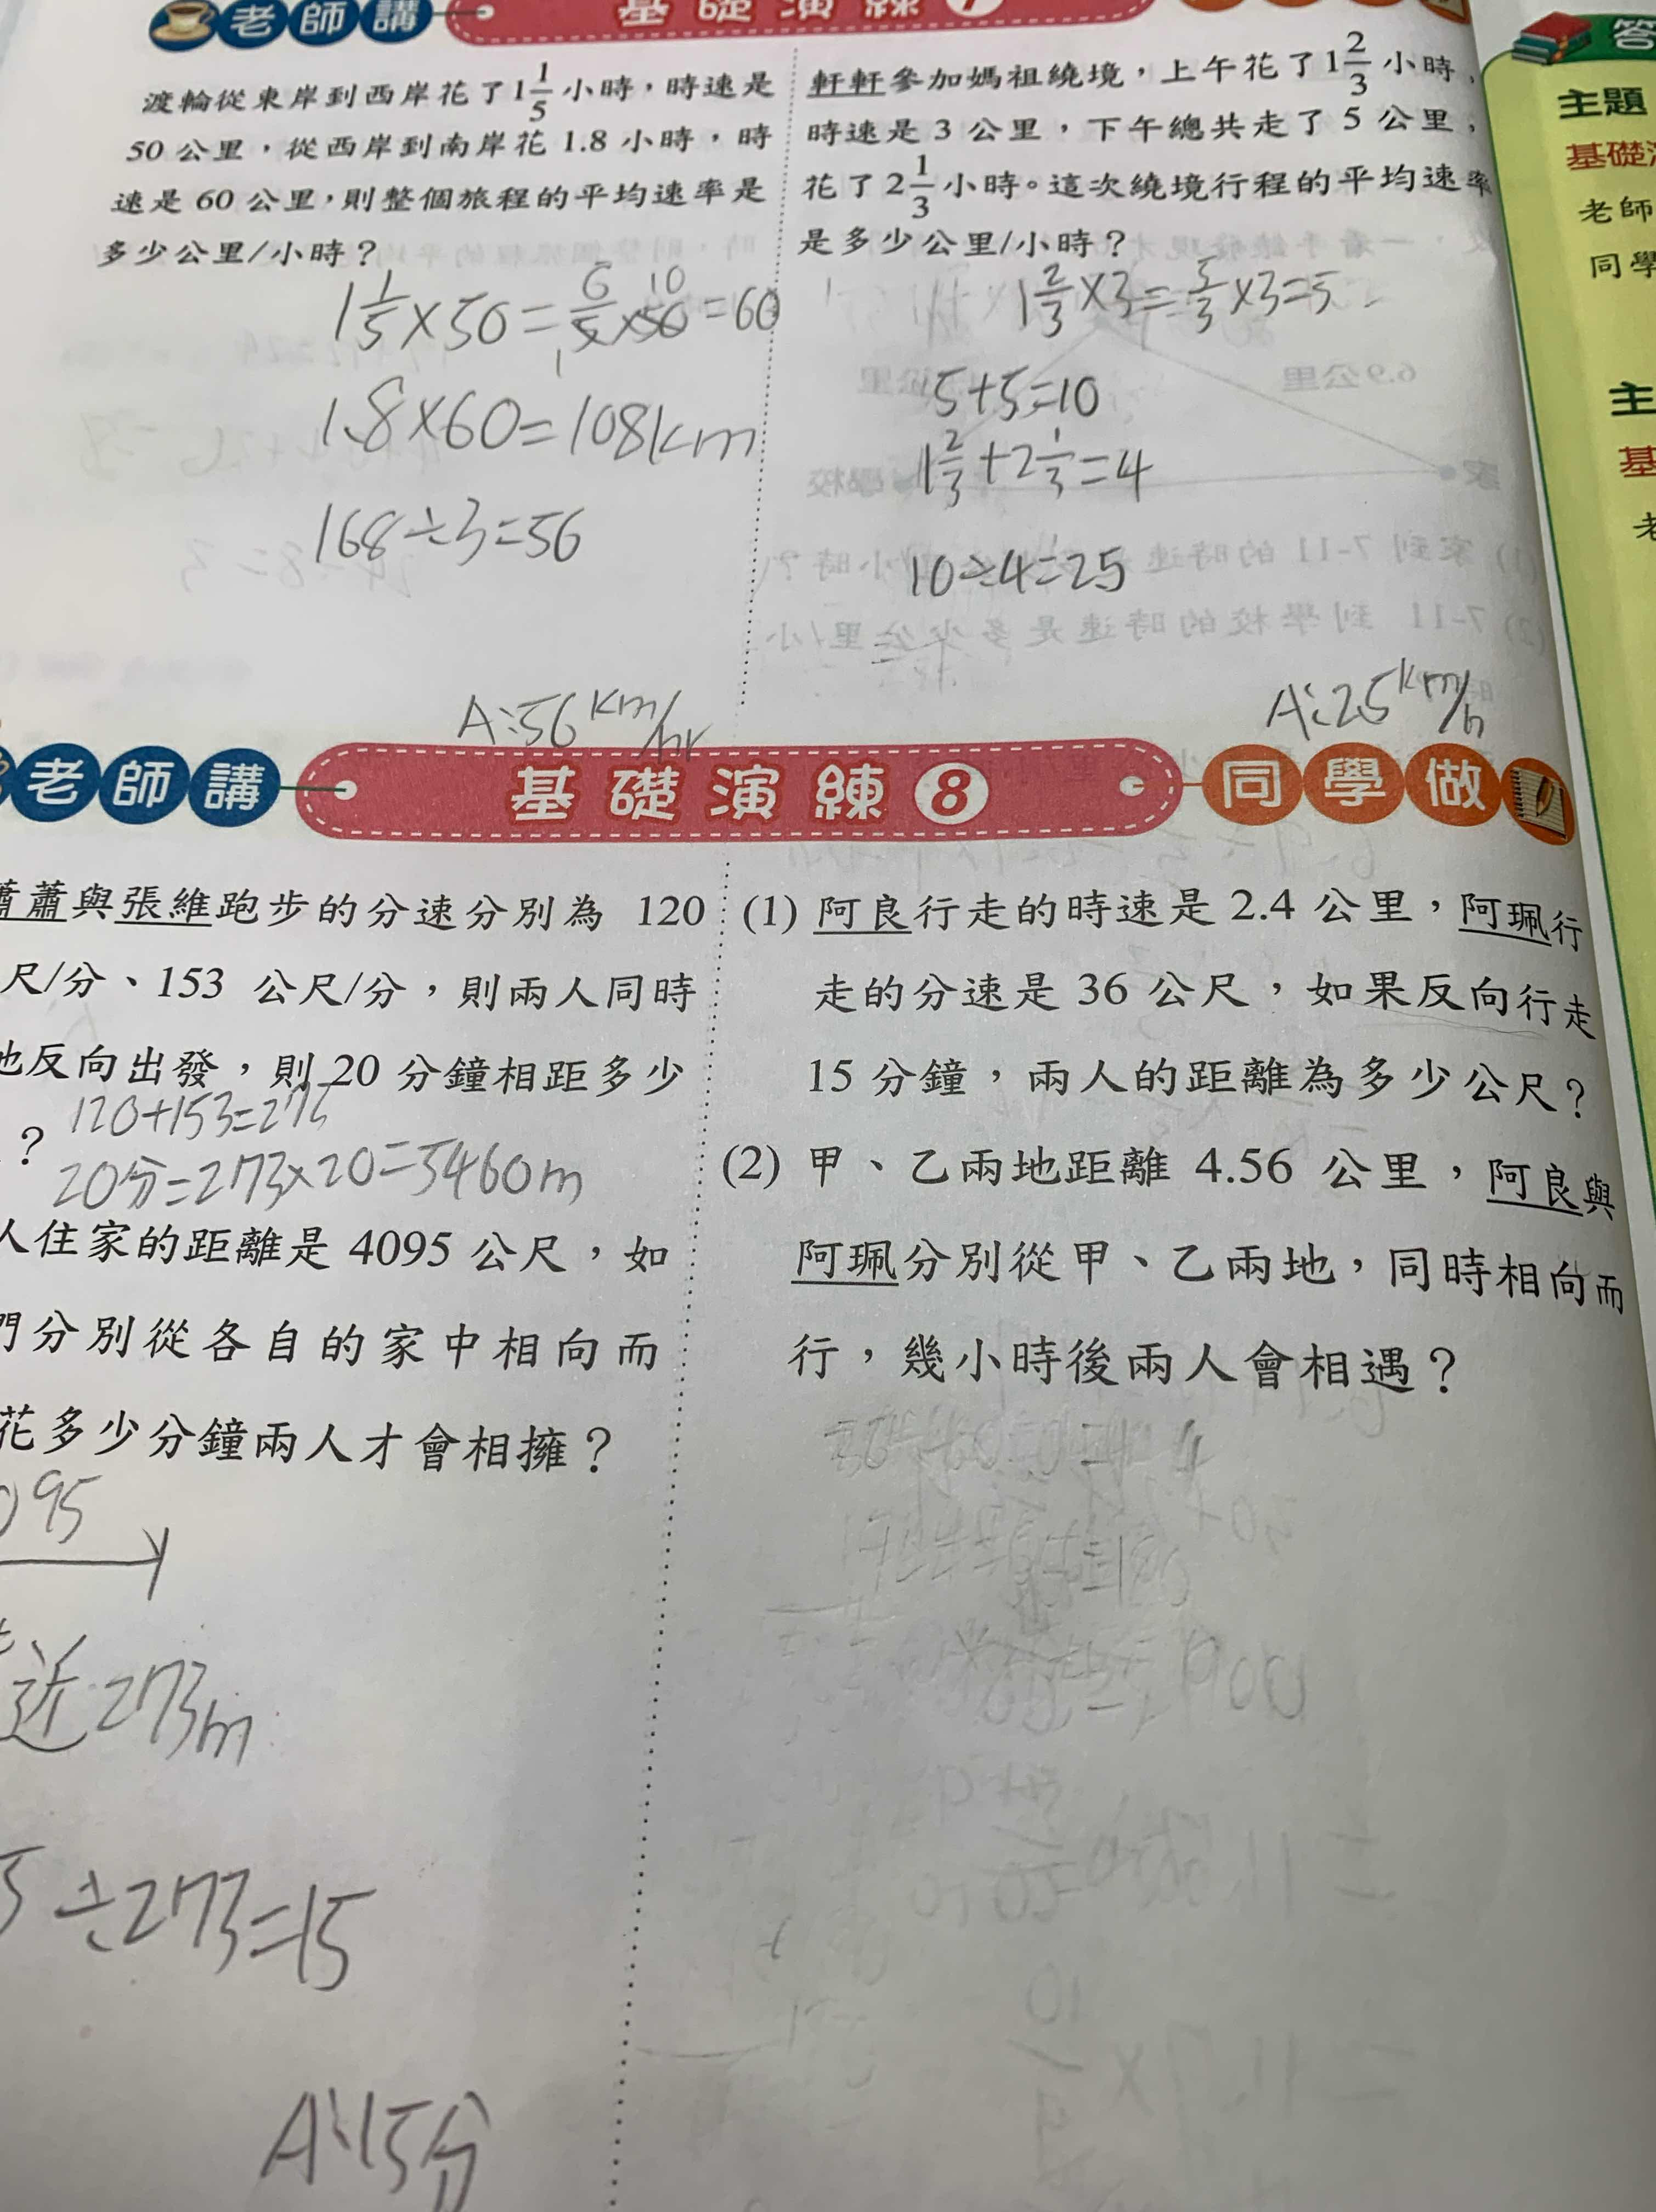 老師講
基礎演練7
渡輪從東岸到西岸花了1 1/5 小時，時速是
50 公里，從西岸到南岸花 1.8 小時，時
速是 60 公里，則整個旅程的平均速率是
多少公里/小時？
1 1/5×50=6/5×50=60
1.8×60=108km
168÷3=56
A:56km/hr
軒軒參加媽祖繞境，上午花了1 2/3 小時，
時速是 3 公里，下午總共走了 5 公里，
花了2 1/3 小時。這次繞境行程的平均速率
是多少公里/小時？
1 2/3×3=5/3×3=5
5+5=10
1 2/3+2 1/3=4
10÷4=25
A:25km/h
老師講
基礎演練8
同學做
蕭蕭與張維跑步的分速分別為 120
尺/分、153 公尺/分，則兩人同時
地反向出發，則 20 分鐘相距多少
？
120+153=273
20分=273×20=5460m
人住家的距離是 4095 公尺，如
門分別從各自的家中相向而
花多少分鐘兩人才會相擁？
095
近273m
5÷273=15
A:15分
(1) 阿良行走的時速是 2.4 公里，阿珮行
走的分速是 36 公尺，如果反向行走
15 分鐘，兩人的距離為多少公尺？
(2) 甲、乙兩地距離 4.56 公里，阿良與
阿珮分別從甲、乙兩地，同時相向而
行，幾小時後兩人會相遇？
答
主題
基礎演
老師
同學
主
基
老